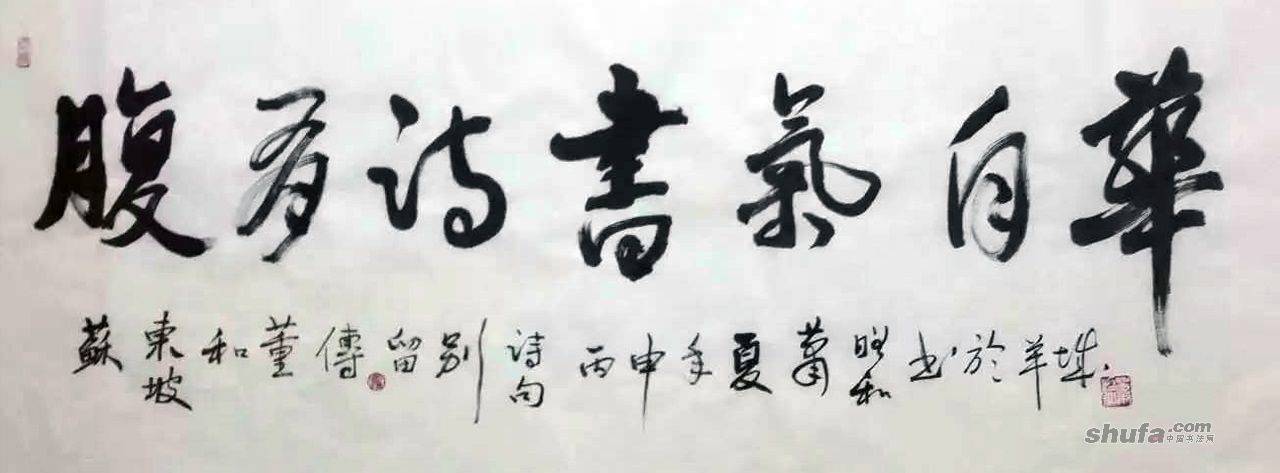 腹有詩書氣自華
蘇東坡和董傳留别詩句丙申年夏蕭昭和书於羊城
shufa.com
中国书法网